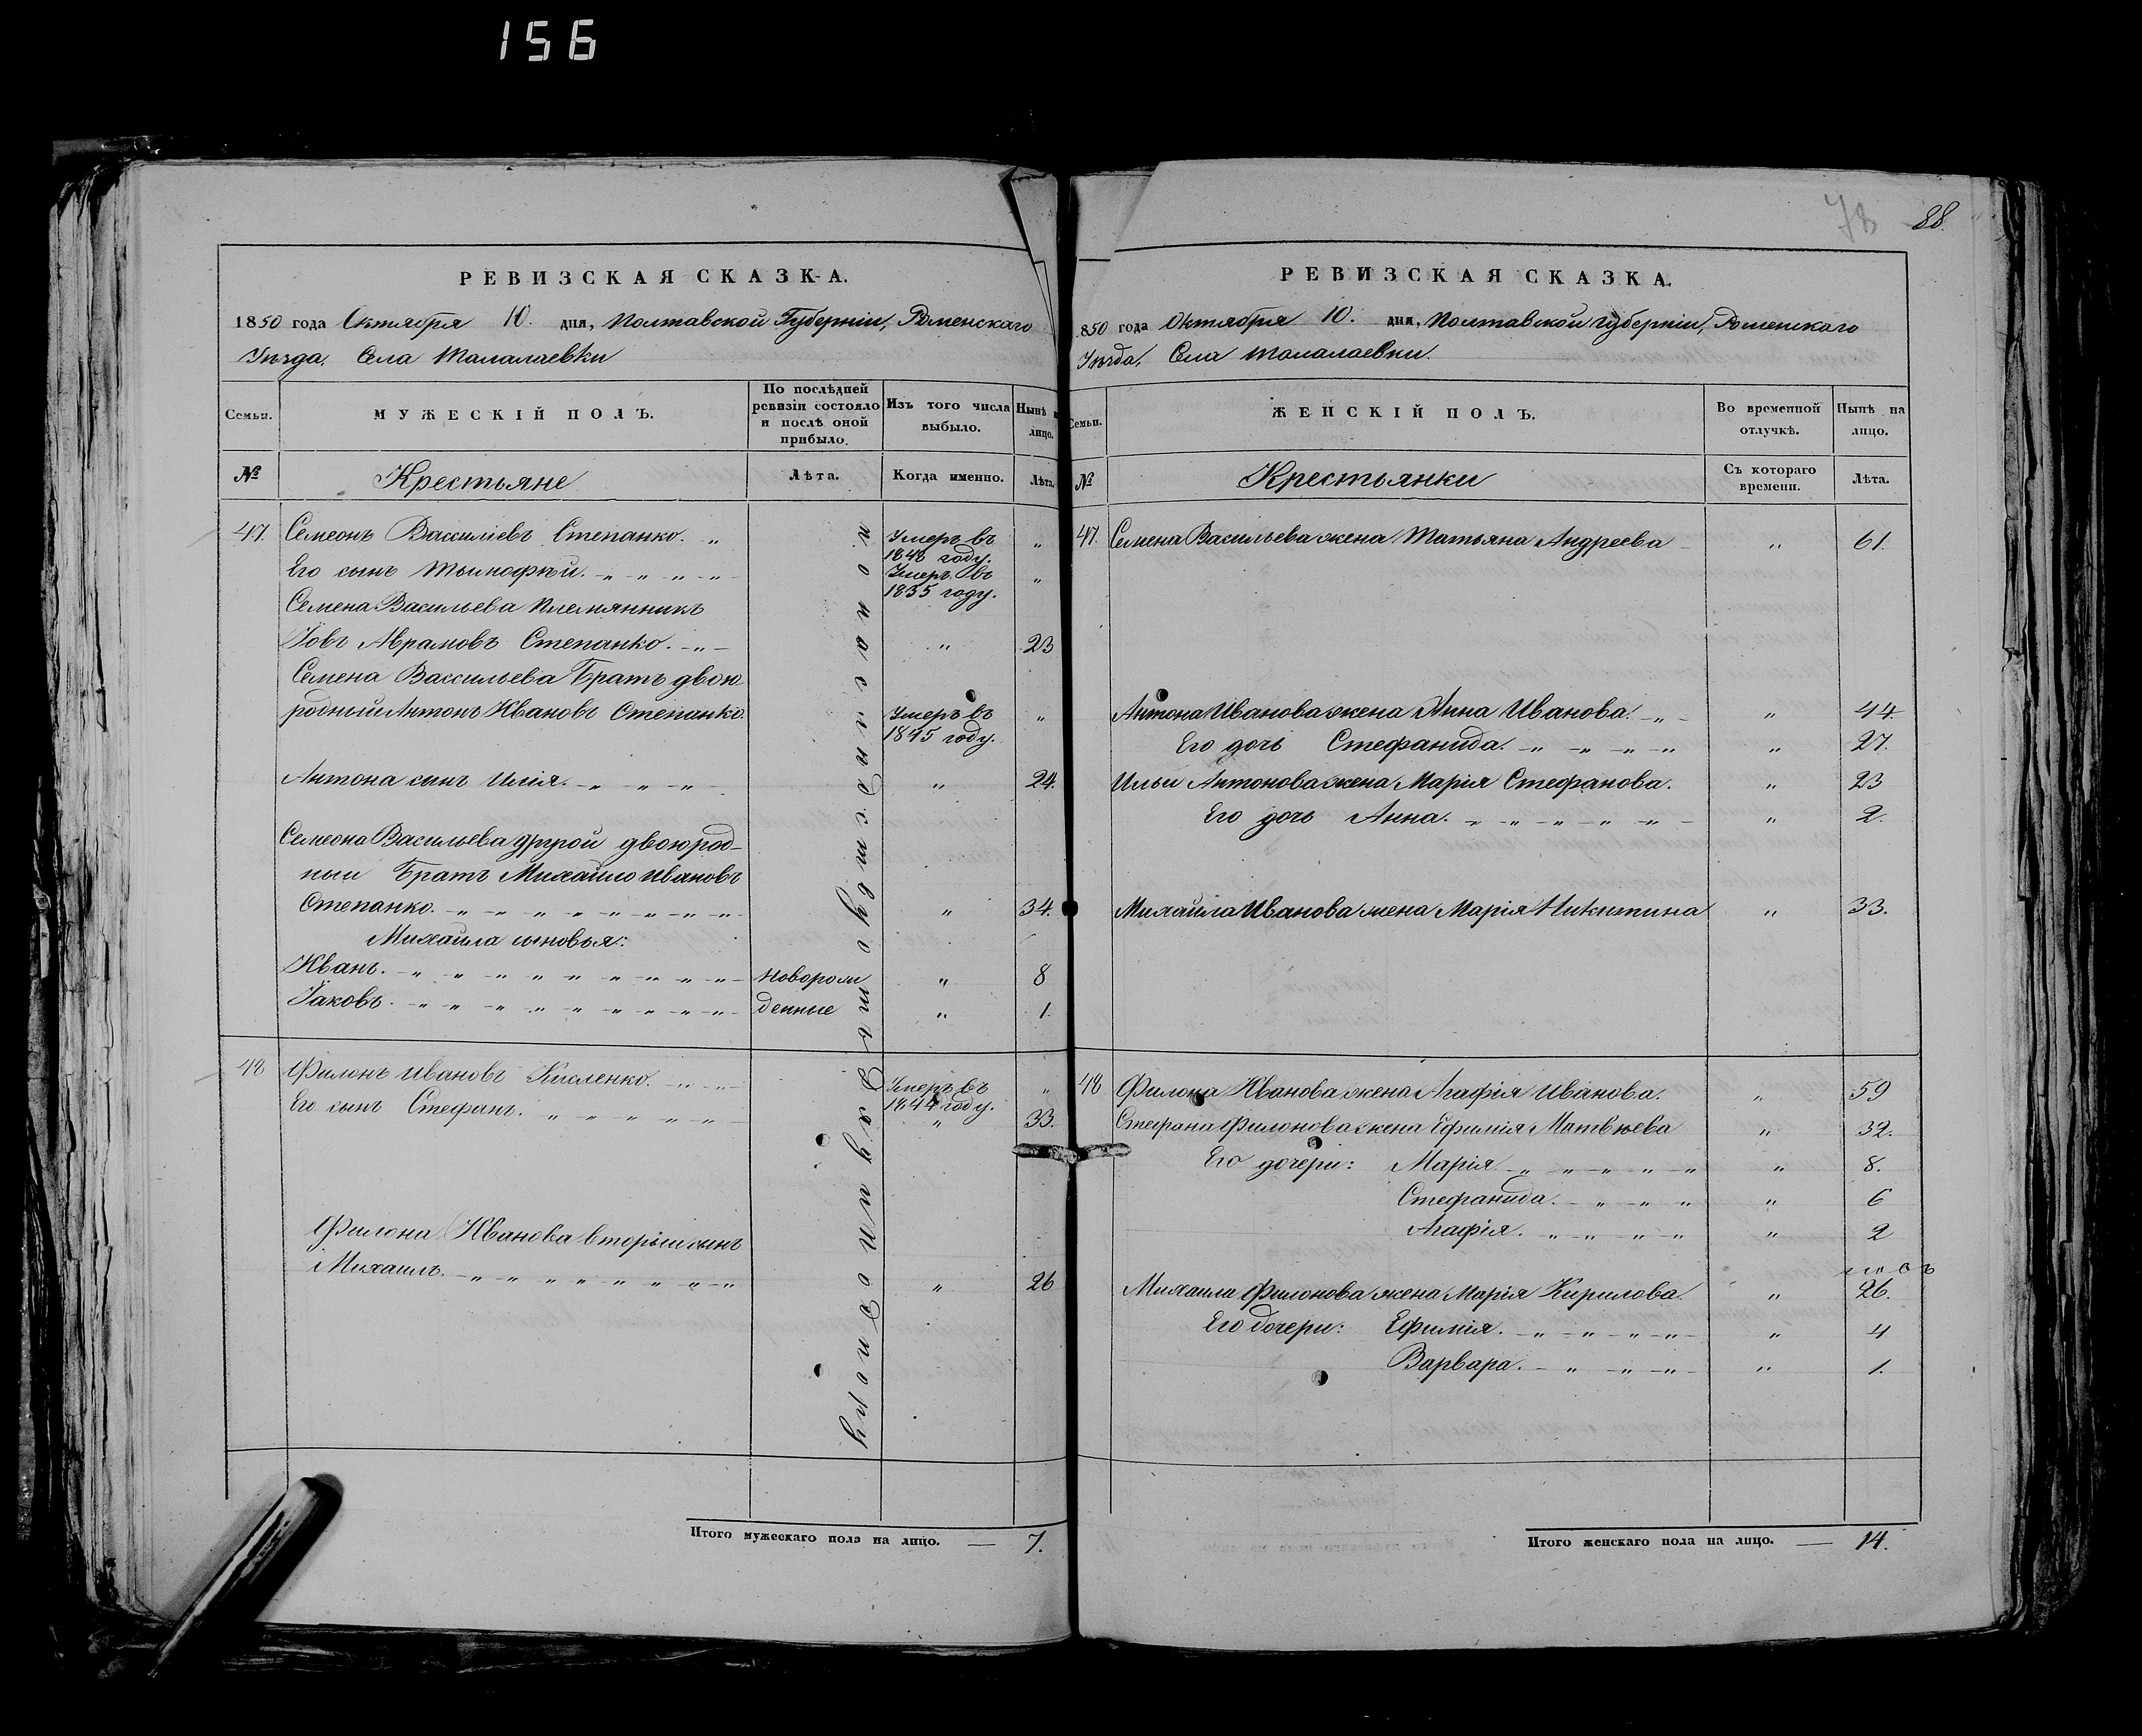 156
78 88.
РЕВИЗСКАЯ СКАЗКА.
1850 года Октября 10. дня, Полтавской Губерніи, Роменскаго
Уѣзда, Села Талалаевки
Семьи.
МУЖЕСКІЙ ПОЛЪ.
По послѣдней ревизіи состояло и послѣ оной прибыло.
Изъ того числа выбыло.
Нынѣ на лицо.
№ Крестьяне Лѣта. Когда именно. Лѣта.
47. Семеонъ Василіевъ Степанко. „ Умеръ въ 1848 году. „
Его сынъ Тымофѣй. „ „ „ „ Умеръ въ 1835 году. „
Семена Васильева племянникъ
Іовъ Аврамовъ Степанко. „ „ 23
Семена Вассильева Братъ двою
родный Антонъ Ивановъ Степанко. Умеръ въ 1845 году. „
Антона сынъ Илія. „ „ „ „ 24.
Семеона Васильева другой двоюрод-
ный Братъ Михайло Ивановъ
Степанко. „ „ „ „ „ „ „ „ „ 34.
Михаила сыновья:
Иванъ. „ „ „ „ „ „ „ „ „ Новорож „ 8
Іаковъ. „ „ „ „ „ „ „ „ „ денные „ 1.
48 Филонъ Ивановъ Кисленко. „ „ Умеръ въ 1844 году. „
Его сынъ Стефанъ. „ „ „ „ „ „ 33.
Филона Иванова вторый сынъ
Михаилъ. „ „ „ „ „ „ „ „ „ 26
Итого мужескаго пола на лицо. — 7.
РЕВИЗСКАЯ СКАЗКА.
850 года Октября 10. дня, Полтавской губерніи, Роменскаго
Уѣзда, Села Талалаевки.
Семьи.
ЖЕНСКІЙ ПОЛЪ.
Во временной отлучкѣ.
Нынѣ на лицо.
№ Крестьянки Съ котораго времени. Лѣта.
47. Семена Васильева жена Татьяна Андреева „ 61.
Антона Иванова жена Анна Иванова. „ „ 44.
Его дочь Стефанида. „ „ „ „ „ 27.
Ильи Антонова жена Марія Стефанова. „ 23
Его дочь Анна. „ „ „ „ „ „ 2.
Михайла Иванова жена Марія Никитина „ 33.
48 Филона Иванова жена Агафія Иванова. „ 59
Стефана Филонова жена Ефимія Матвѣева „ 32.
Его дочери: Марія „ „ „ „ „ „ 8.
Стефанида. „ „ „ „ 6
Агафія. „ „ „ „ „ 2
Михаила Филонова жена Марія Кирилова. „ 26.
Его дочери: Ефимія. „ „ „ „ „ 4
Варвара. „ „ „ „ 1.
Итого женскаго пола на лицо. — 14.